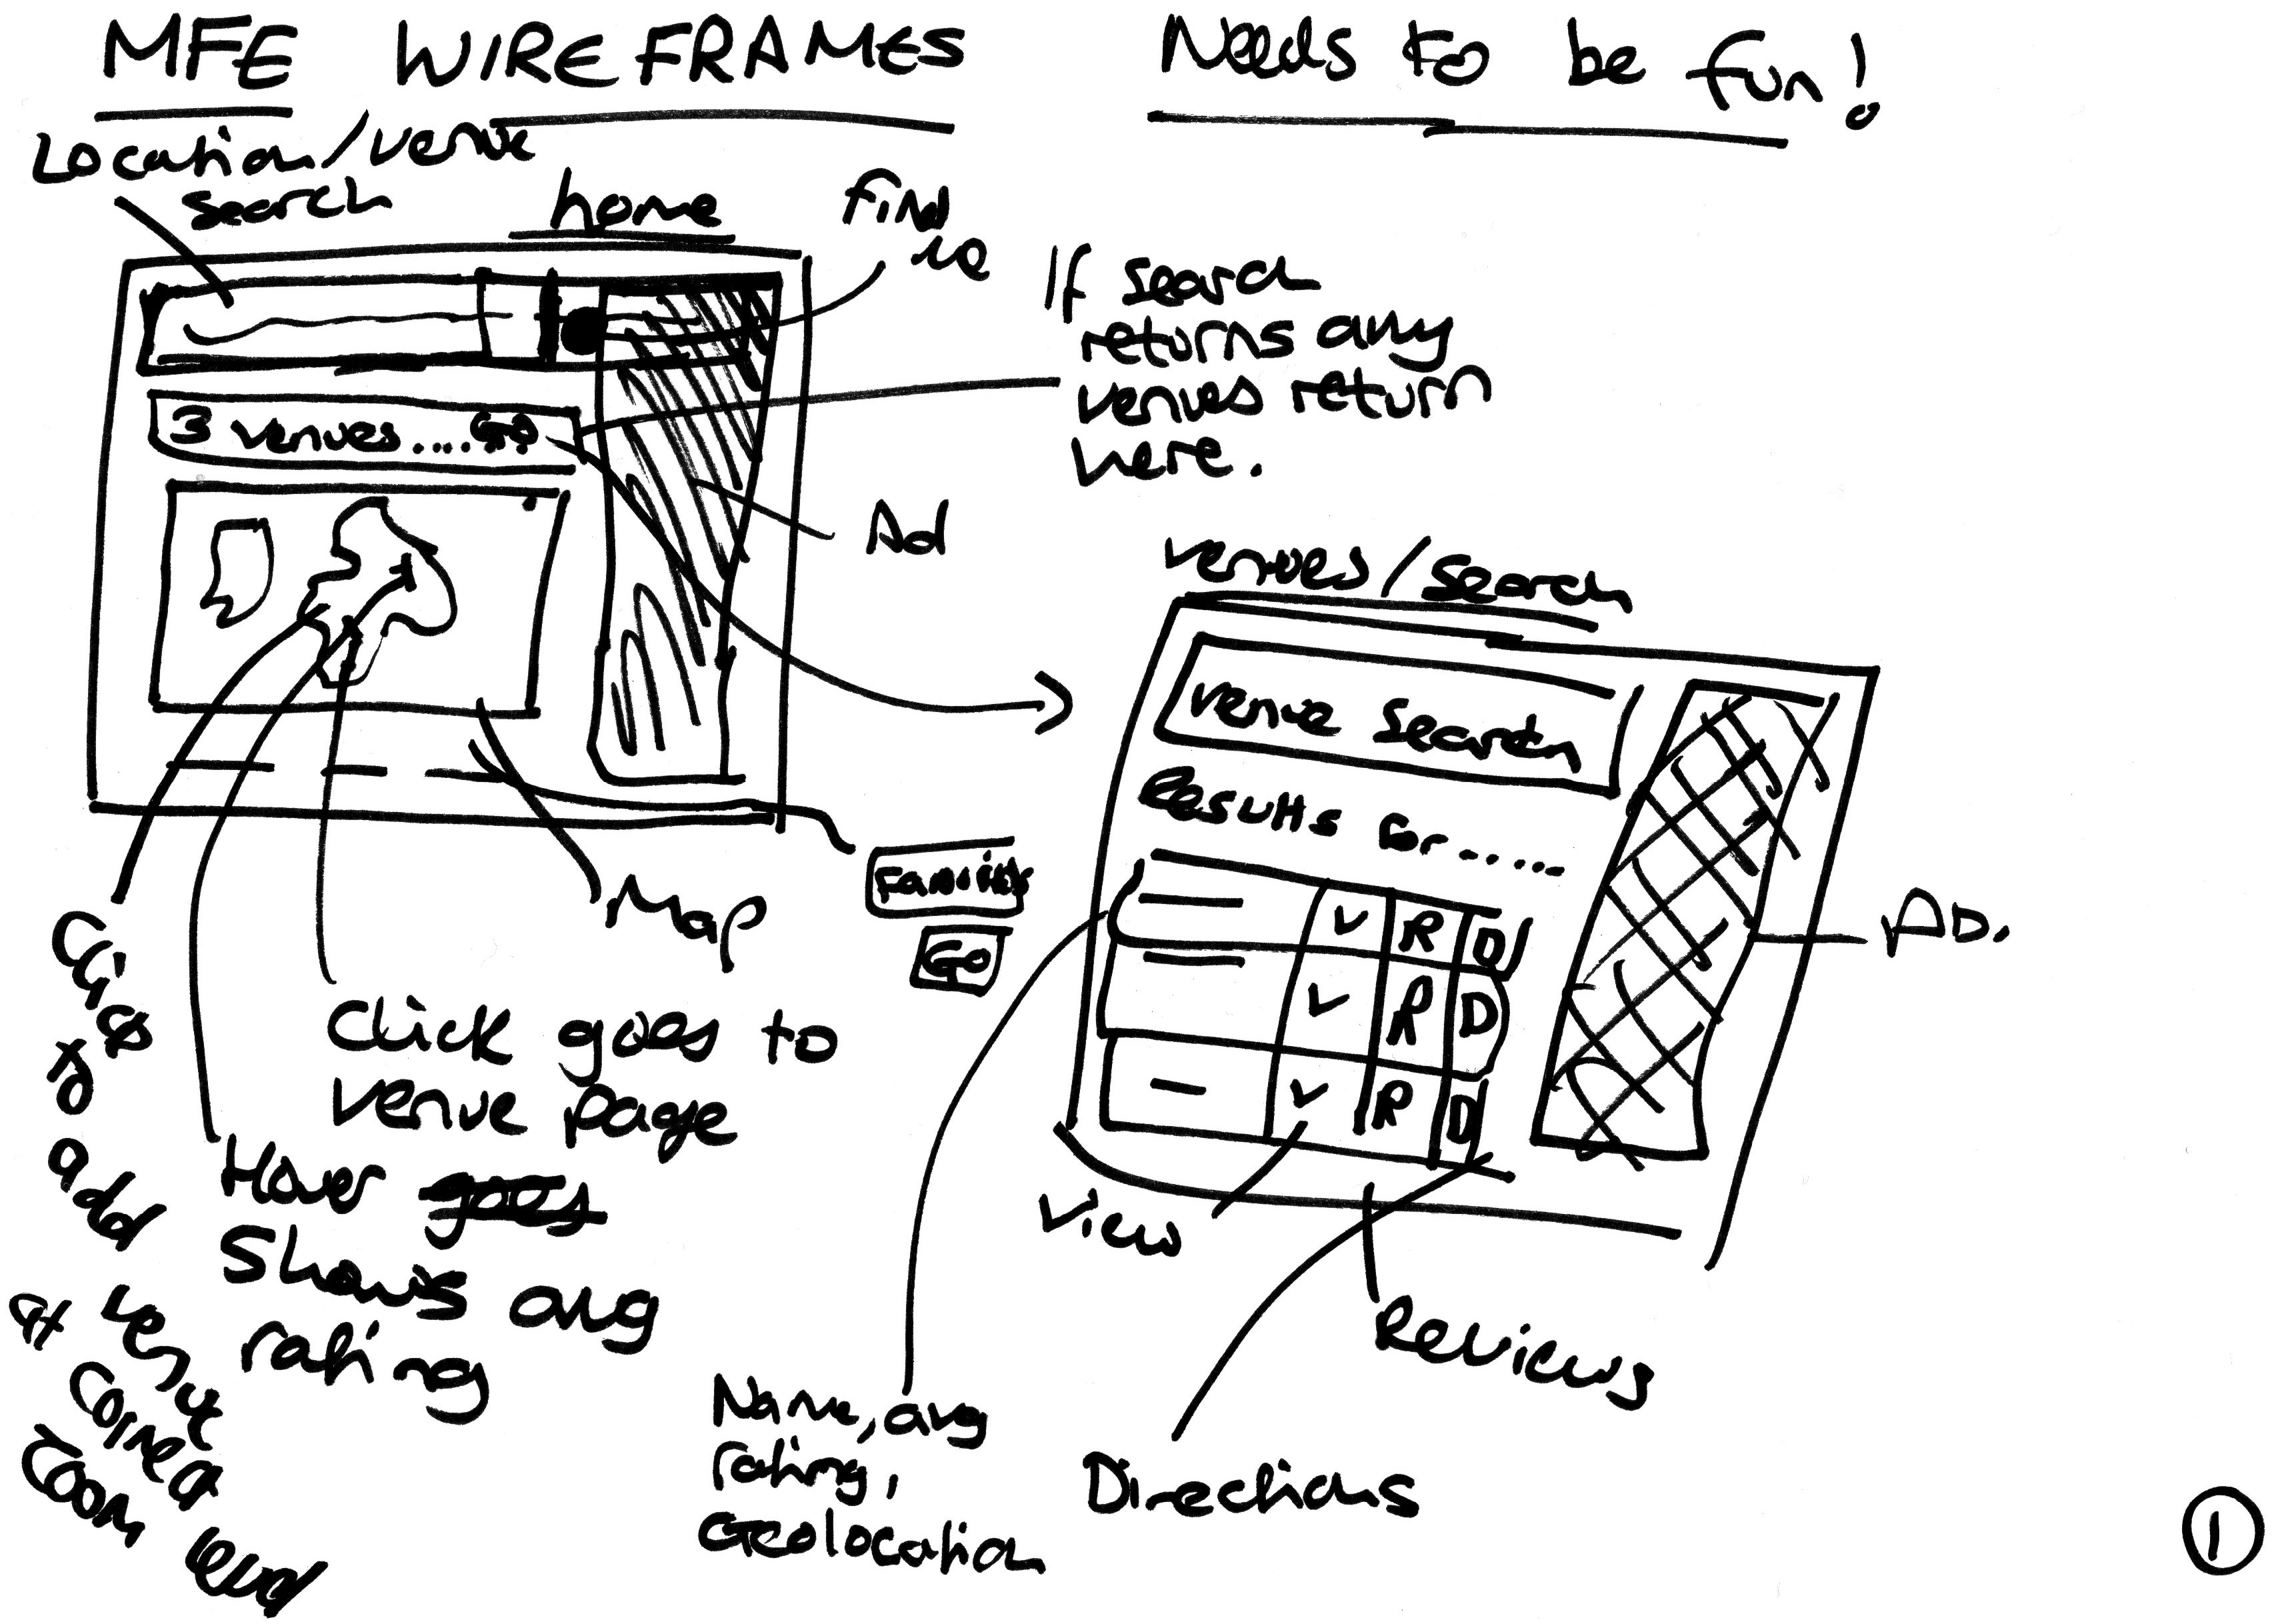 MFE WIREFRAMES
Needs to be fun!
Location/venue
search
home
find
me
If search
returns any
venues return
here.
3 venues.... GO
Ad
Map
Click goes to
venue page
Hover goes
shows avg
rating
Click
to
add
venue
at correct
zoom level
GO
venues/search
venue search
Results for .....
V R D
V R D
V R D
AD.
View
Reviews
Directions
Name, avg
rating,
Geolocation
1